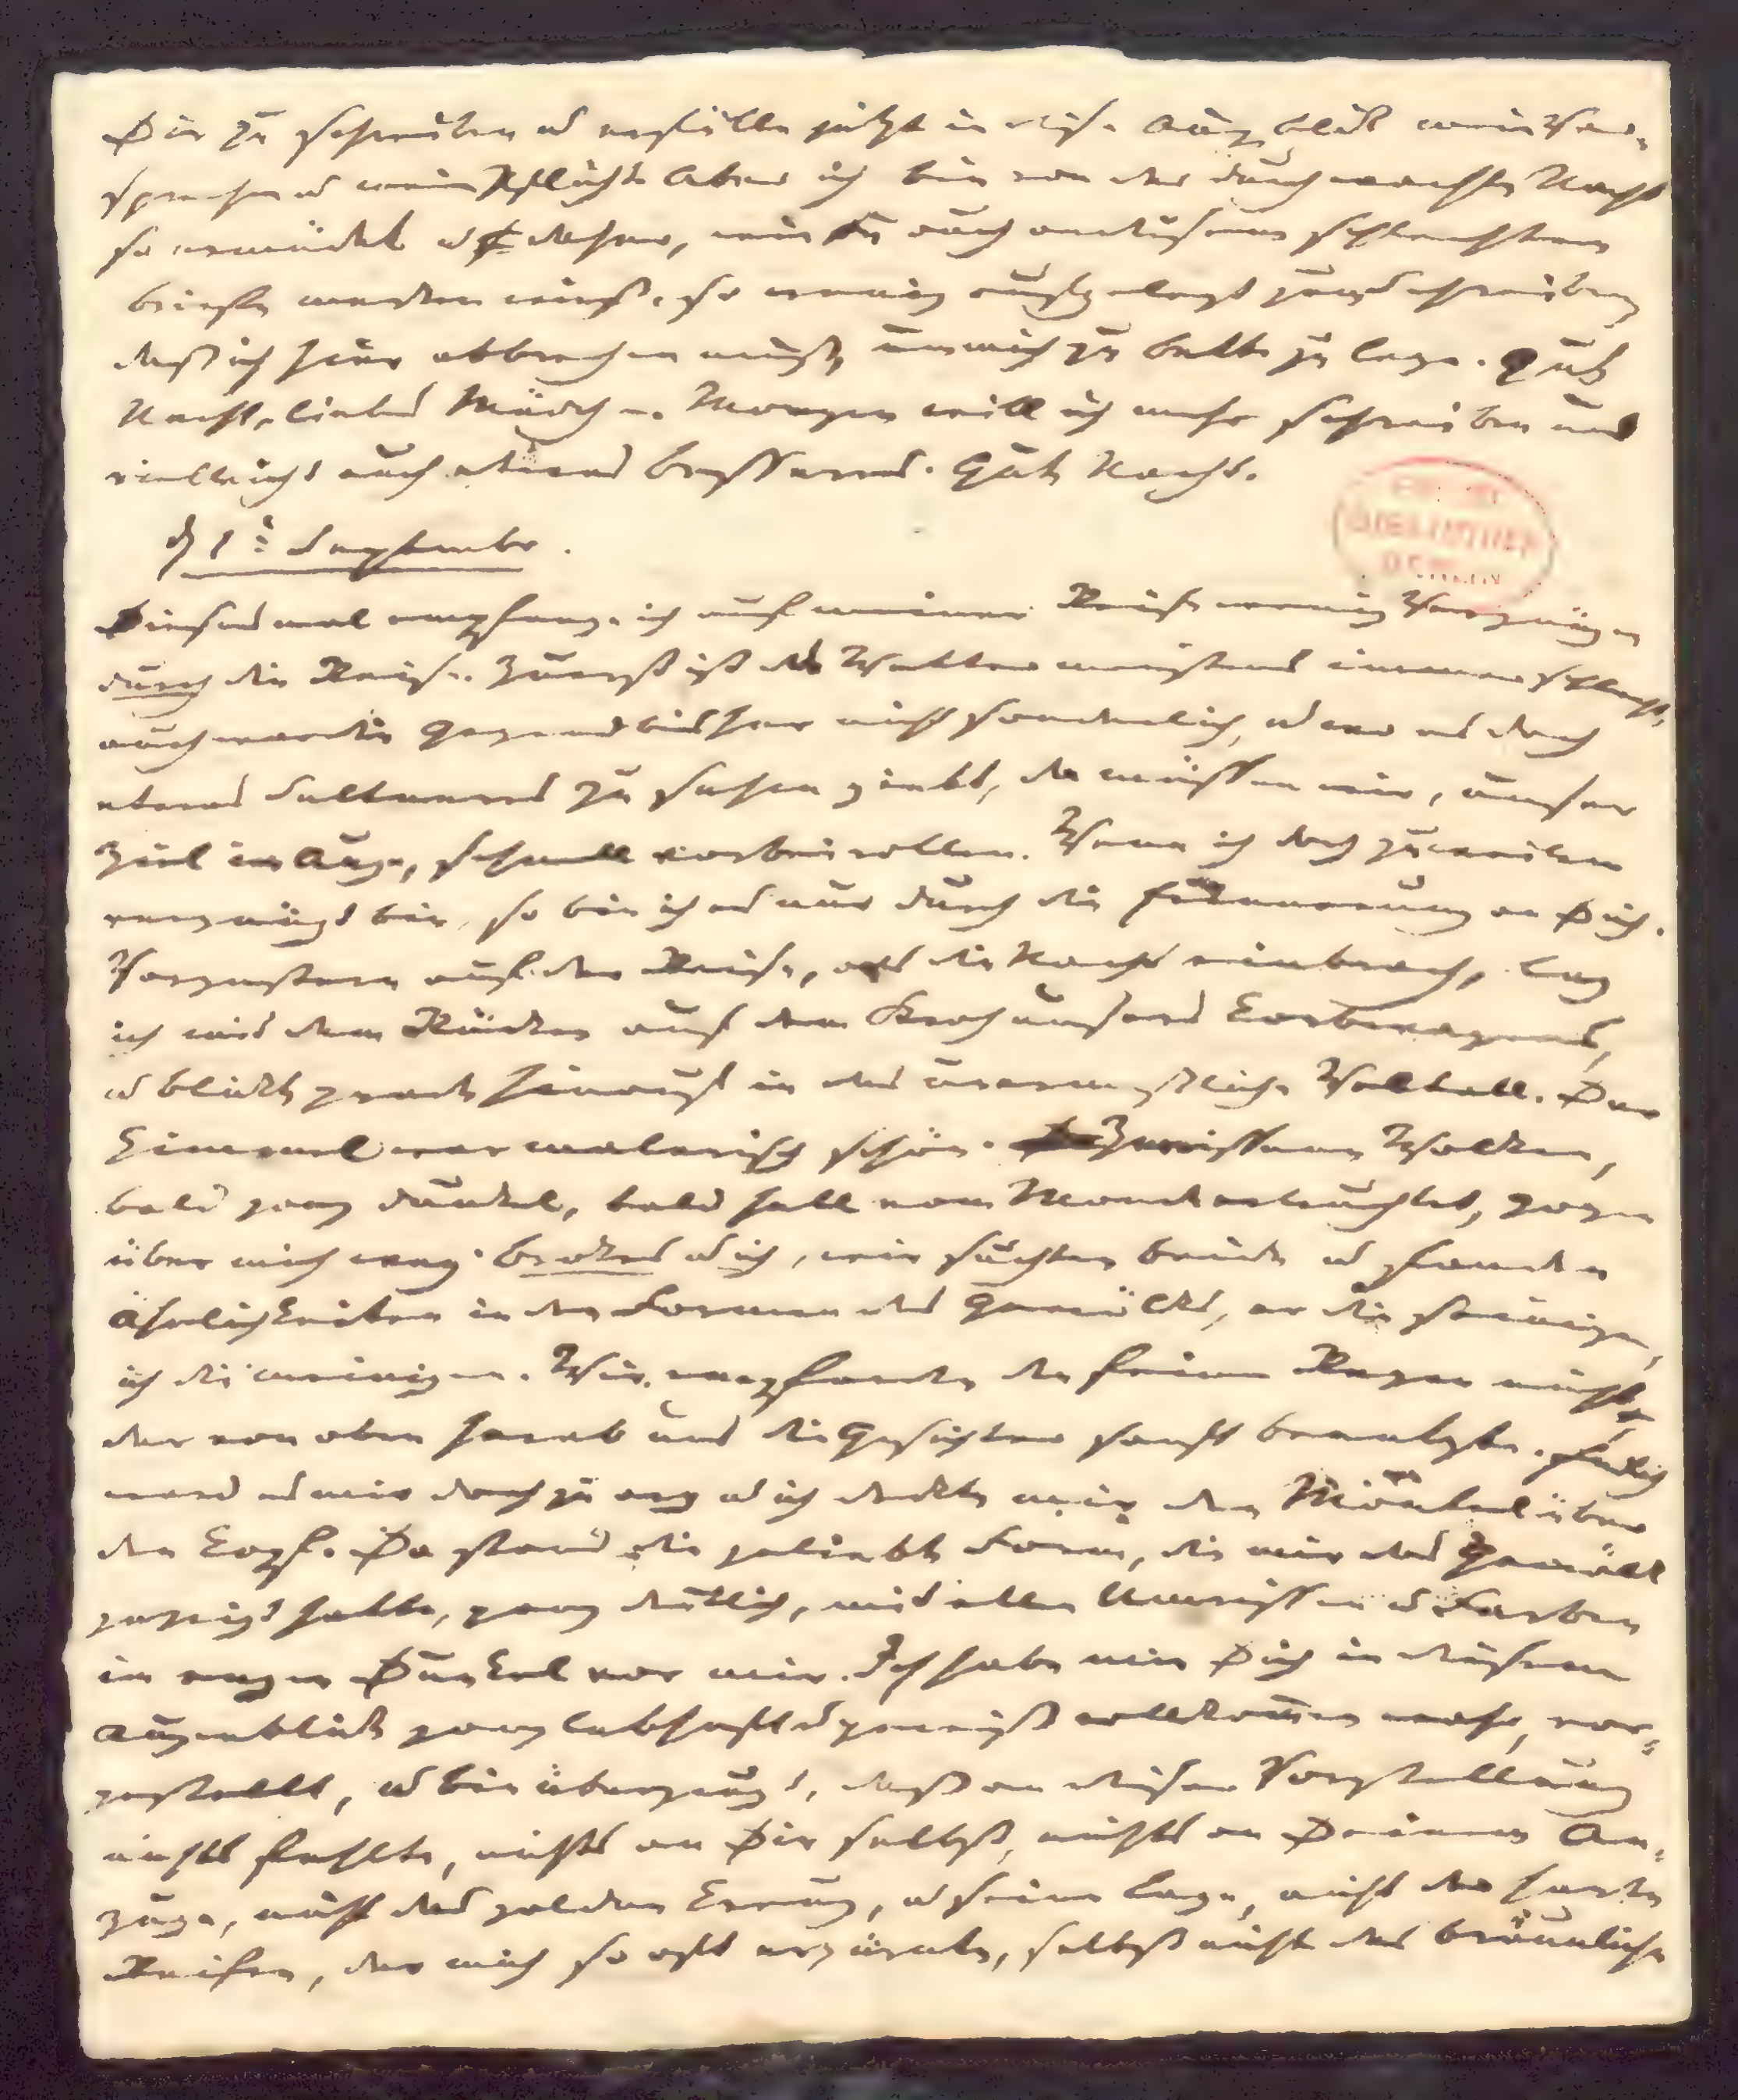 Dir zu schreiben u erfülle jetzt in diesem Augenblick mein Ver-
sprechen u meine Pflicht. Aber ich bin von der durchwachten Nacht
so ermüdet u daher, wie Du auch an diesem schlechten
Briefe merken wirst, so wenig aufgelegt zum Schreiben,
daß ich hier abbrechen muß, um mich zu Bette zu legen. Gute
Nacht, liebes Mädchen. Morgen will ich mehr schreiben und
vielleicht auch etwas Besseres. Gute Nacht.
d 1t September.
Diesmal empfange ich auf meiner Reise wenig Vergnügen
durch die Reise. Zuerst ist das Wetter meistens immer schlecht,
auch war die Gegend bisher nicht sonderlich, u wo es doch
etwas Seltneres zu sehen giebt, da müssen wir, unser
Ziel im Auge, schnell vorbeirollen. Wenn ich doch zuweilen
vergnügt bin, so bin ich es nur durch die Erinnerung an Dich.
Vorgestern auf der Reise, als die Nacht einbrach, lag
ich mit dem Rücken auf dem Stroh unsers Korbwagens,
u blickte grade hinauf in das unermeßliche Weltall. Der
Himmel war malerisch schön. Zerrissene Wolken,
bald ganz dunkel, bald hell vom Monde erleuchtet, zogen
über mich weg. Brokes u ich, wir suchten beide u fanden
Ähnlichkeiten in den Formen des Gewölks, er die seinigen,
ich die meinigen. Wir empfanden den feinen Regen nicht,
der von oben herab uns die Gesichter sanft benetzte. Endlich
ward es mir doch zu arg u ich deckte mir den Mantel über
den Kopf. Da stand die geliebte Form, die mir das Gewölk
gezeigt hatte, ganz deutlich, mit allen Umrissen u Farben
im engen Dunkel vor mir. Ich habe mir Dich in diesem
Augenblick ganz lebhaft u gewiß vollkommen wahr, vor-
gestellt, u bin überzeugt, daß an dieser Vorstellung
nichts fehlte, nichts an Dir selbst, nichts an Deinem An-
zuge, nicht das goldne Kreuz, u seine Lage, nicht der harte
Reifen, der mich so oft erzürnte, selbst nicht das bräunliche